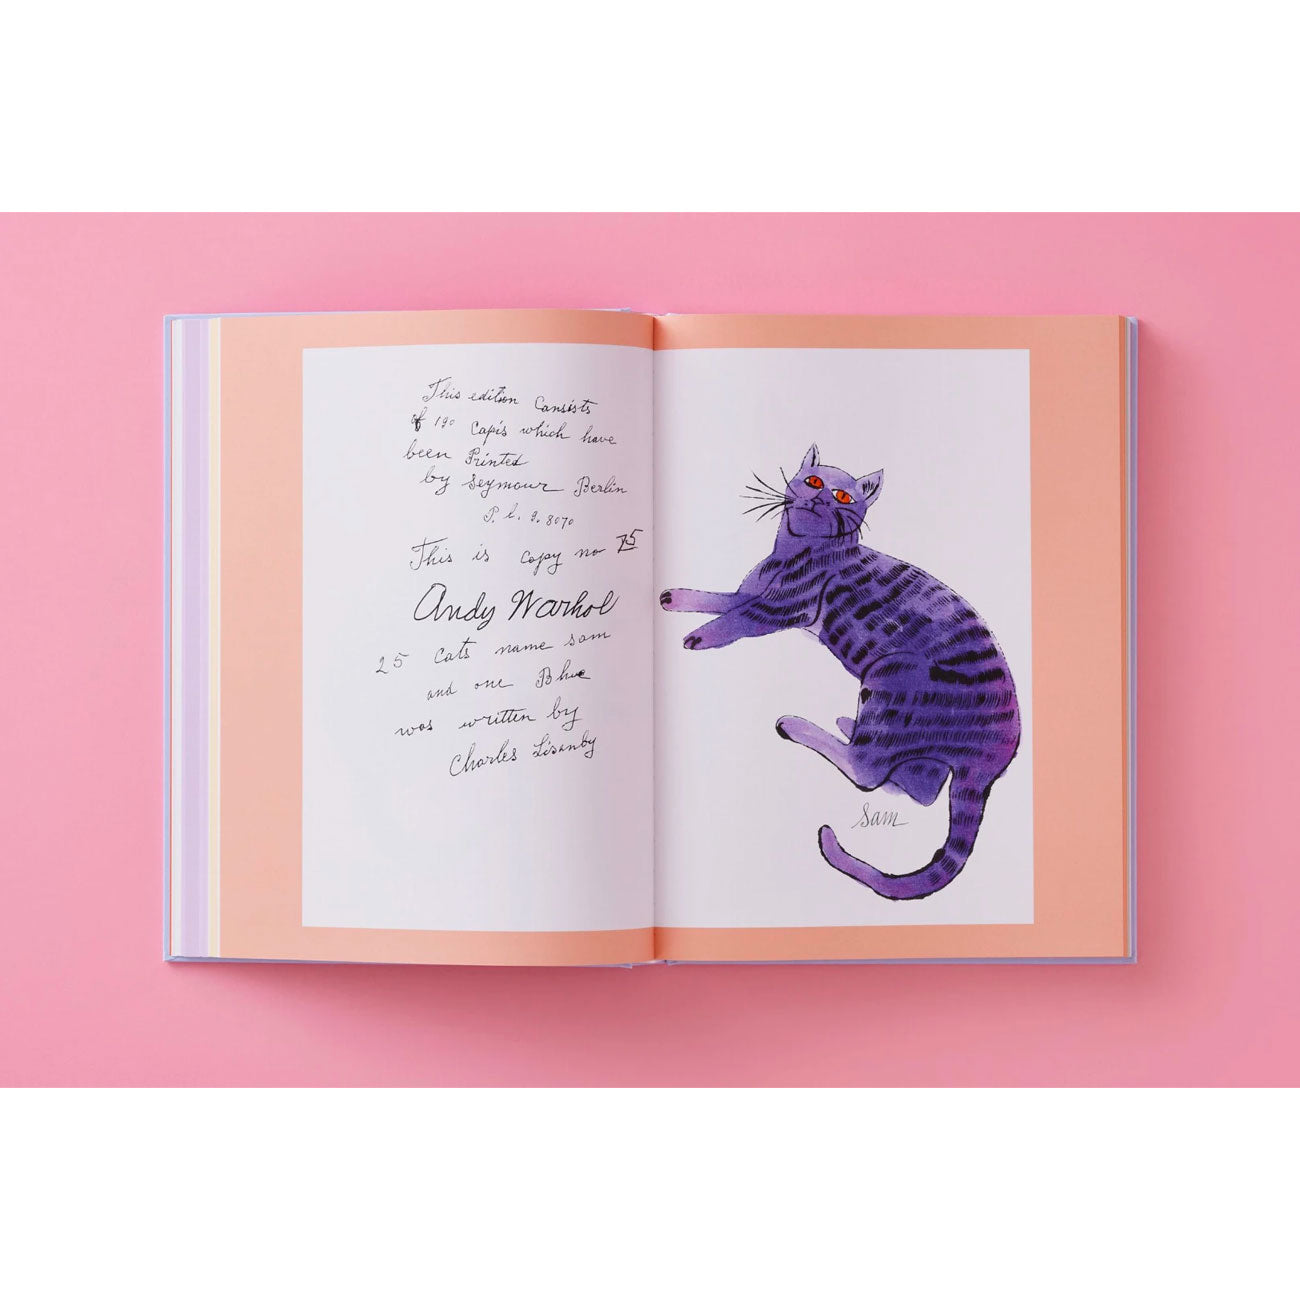 This edition Cansists
of 190 Capis which have
been Printed
by Seymour Berlin
P. l. 9. 8070
This is copy no 75
Andy Warhol
25 Cats name sam
and one Blue
was written by
Charles Lisanby
Sam